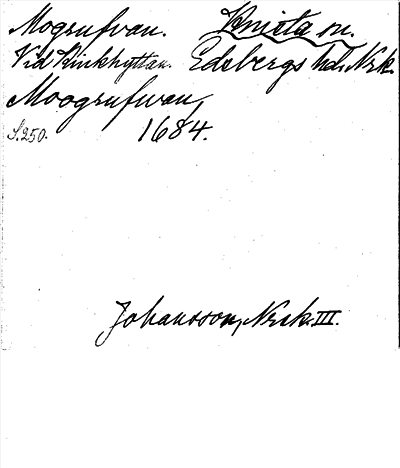 Mogrufvan. Knista sn.
Vid Kinkhyttan. Edsbergs hd. Nrk.
Moogrufwan,
S. 250. 1684.
Johansson, Nrk. III.